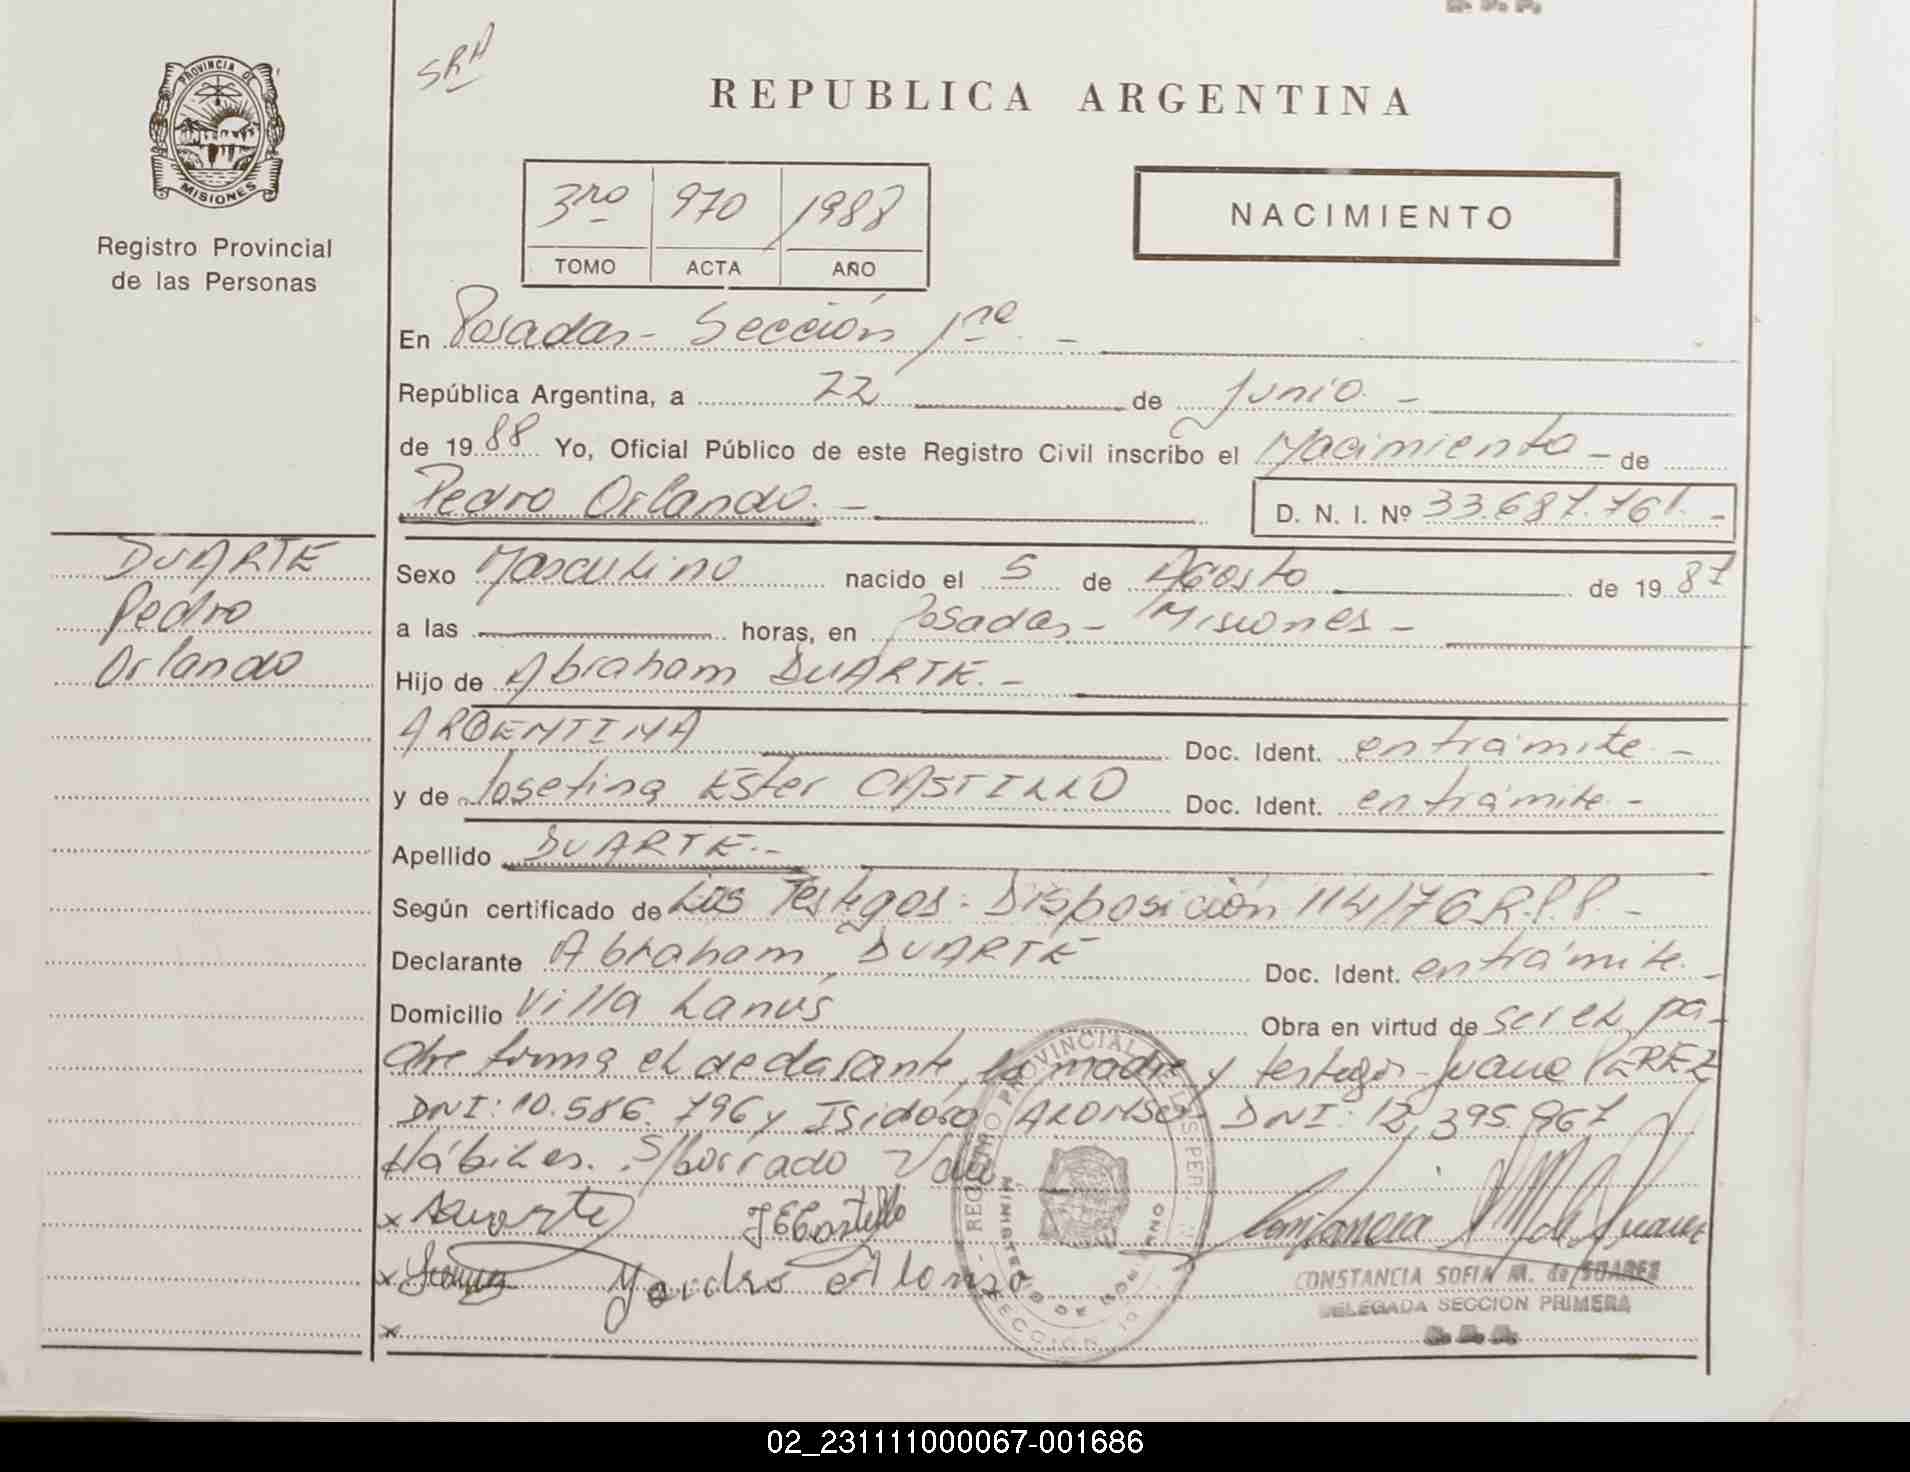 SRA
REPUBLICA ARGENTINA
PROVINCIA DE
MISIONES
Registro Provincial
de las Personas
3ro 970 1988
TOMO ACTA AÑO
NACIMIENTO
En Posadas - Sección 1ra. -
República Argentina, a 22 de Junio. -
de 19 88 Yo, Oficial Público de este Registro Civil inscribo el Nacimiento - de
Pedro Orlando. - D. N. I. Nº 33.687.761. -
DUARTE
Pedro
Orlando
Sexo Masculino nacido el 5 de Agosto de 19 87
a las horas, en Posadas - Misiones -
Hijo de Abraham DUARTE. -
ARGENTINA Doc. Ident. en trámite. -
y de Josefina Ester CASTILLO Doc. Ident. en trámite. -
Apellido DUARTE. -
Según certificado de Los Testigos: Disposición 114/76 R.P.P -
Declarante Abraham DUARTE Doc. Ident. en trámite. -
Domicilio Villa Lanús Obra en virtud de ser el pa-
dre firma el declarante, la madre y testigos - Juana PEREZ
DNI: 10.586.796 y Isidoro ALONSO DNI: 12,395.967
Hábiles. S/borrado Vale
x ADuarte JECastillo
x Ysidro Alonzo
x
CONSTANCIA SOFIA M. de SUAREZ
DELEGADA SECCION PRIMERA
R. P. P.
02_231111000067-001686